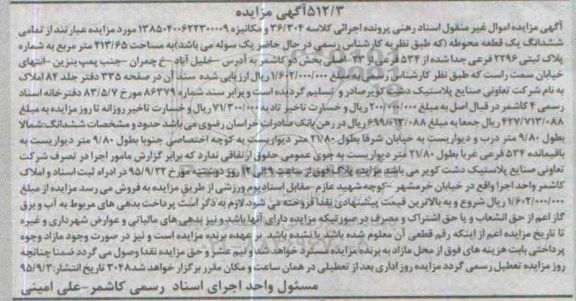 ۵۱۲/۳آگهی مزایده
آگهی مزایده اموال غیر منقول اسناد رهنی پرونده اجرائی کلاسه ۳۶/۳۰۴ و مکانیزه ۱۳۸۵۰۴۰۰۶۲۲۳۰۰۰۰۹ مورد مزایده عبارتند از تمامی
ششدانگ یک قطعه محوطه (که طبق نظریه کارشناس رسمی در حال حاضر یک سوله می باشد)به مساحت ۲۱۳/۶۵ متر مربع به شماره
پلاک ثبتی ۲۲۹۶ فرعی جدا شده از ۵۳۴ فرعی از ۴۳- اصلی بخش دو کاشمر به آدرس -خلیل آباد -خ چمران -جنب پمپ بنزین -انتهای
خیابان سمت راست که طبق نظر کارشناس رسمی به مبلغ ۱/۶۰۲/۰۰۰/۰۰۰ ریال ارزیابی شده سند آن در صفحه ۳۳۵ دفتر جلد ۸۴ املاک
به نام شرکت تعاونی صنایع پلاستیک دشت کویر صادر و تسلیم گردیده است و برابر سند شماره ۸۶۳۷۹ مورخ ۸۳/۵/۷ دفترخانه اسناد
رسمی ۴ کاشمر در قبال اصل به مبلغ ۲۰۰/۰۰۰/۰۰۰ ریال و خسارت تاخیر تادیه ۷۱/۳۰۰/۰۰۰ ریال و خسارت تاخیر روزانه تا روز مزایده به مبلغ
۴۲۷/۷۱۳/۰۸۸ ریال جمعا به مبلغ ۶۹۹/۰۱۳/۰۸۸ ریال در رهن بانک صادرات خراسان رضوی می باشد حدود و مشخصات ششدانگ:شمالا
بطول ۹/۸۰ متر درب و دیواریست به خیابان شرقا بطول ۲۱/۸۰ متر دیواریست به کوچه اختصاصی جنوبا بطول ۹/۸۰ متر دیواریست به
باقیمانده ۵۳۴ فرعی غربا بطول ۲۱/۸۰ متر دیواریست به جوی عمومی حقوق ارتفاقی ندارد که برابر گزارش مامور اجرا در تصرف شرکت
تعاونی صنایع پلاستیک دشت کویر می باشد مزایده پلاک فوق از ساعت ۹ الی ۱۲ روز دوشنبه مورخ ۹۵/۹/۲۲ در اداره ثبت اسناد و املاک
کاشمر واحد اجرا واقع در خیابان خرمشهر -کوچه شهید عازم -مقابل استادیوم ورزشی از طریق مزایده به فروش می رسد مزایده از مبلغ
۱/۶۰۲/۰۰۰/۰۰۰ ریال شروع و به بالاترین قیمت پیشنهادی نقدا فروخته می شود.لازم به ذکر است پرداخت بدهی های مربوط به آب و برق
گاز اعم از حق انشعاب و یا حق اشتراک و مصرف در صورتیکه مزایده دارای آنها باشد و نیز بدهی های مالیاتی و عوارض شهرداری و غیره
تا تاریخ مزایده اعم از اینکه رقم قطعی آن معلوم شده باشد یا نشده باشد بر عهده برنده مزایده است و نیز در صورت وجود مازاد وجوه
پرداختی بابت هزینه های فوق از محل مازاد به برنده مزایده مسترد خواهد شد و نیم عشر و حق مزایده نقدا وصول می گردد ضمنا چنانچه
روز مزایده تعطیل رسمی گردد مزایده روز اداری بعد از تعطیلی در همان ساعت و مکان مقرر برگزار خواهد شد۳۰۴۸ تاریخ انتشار:۹۵/۹/۳
مسئول واحد اجرای اسناد رسمی کاشمر-علی امینی